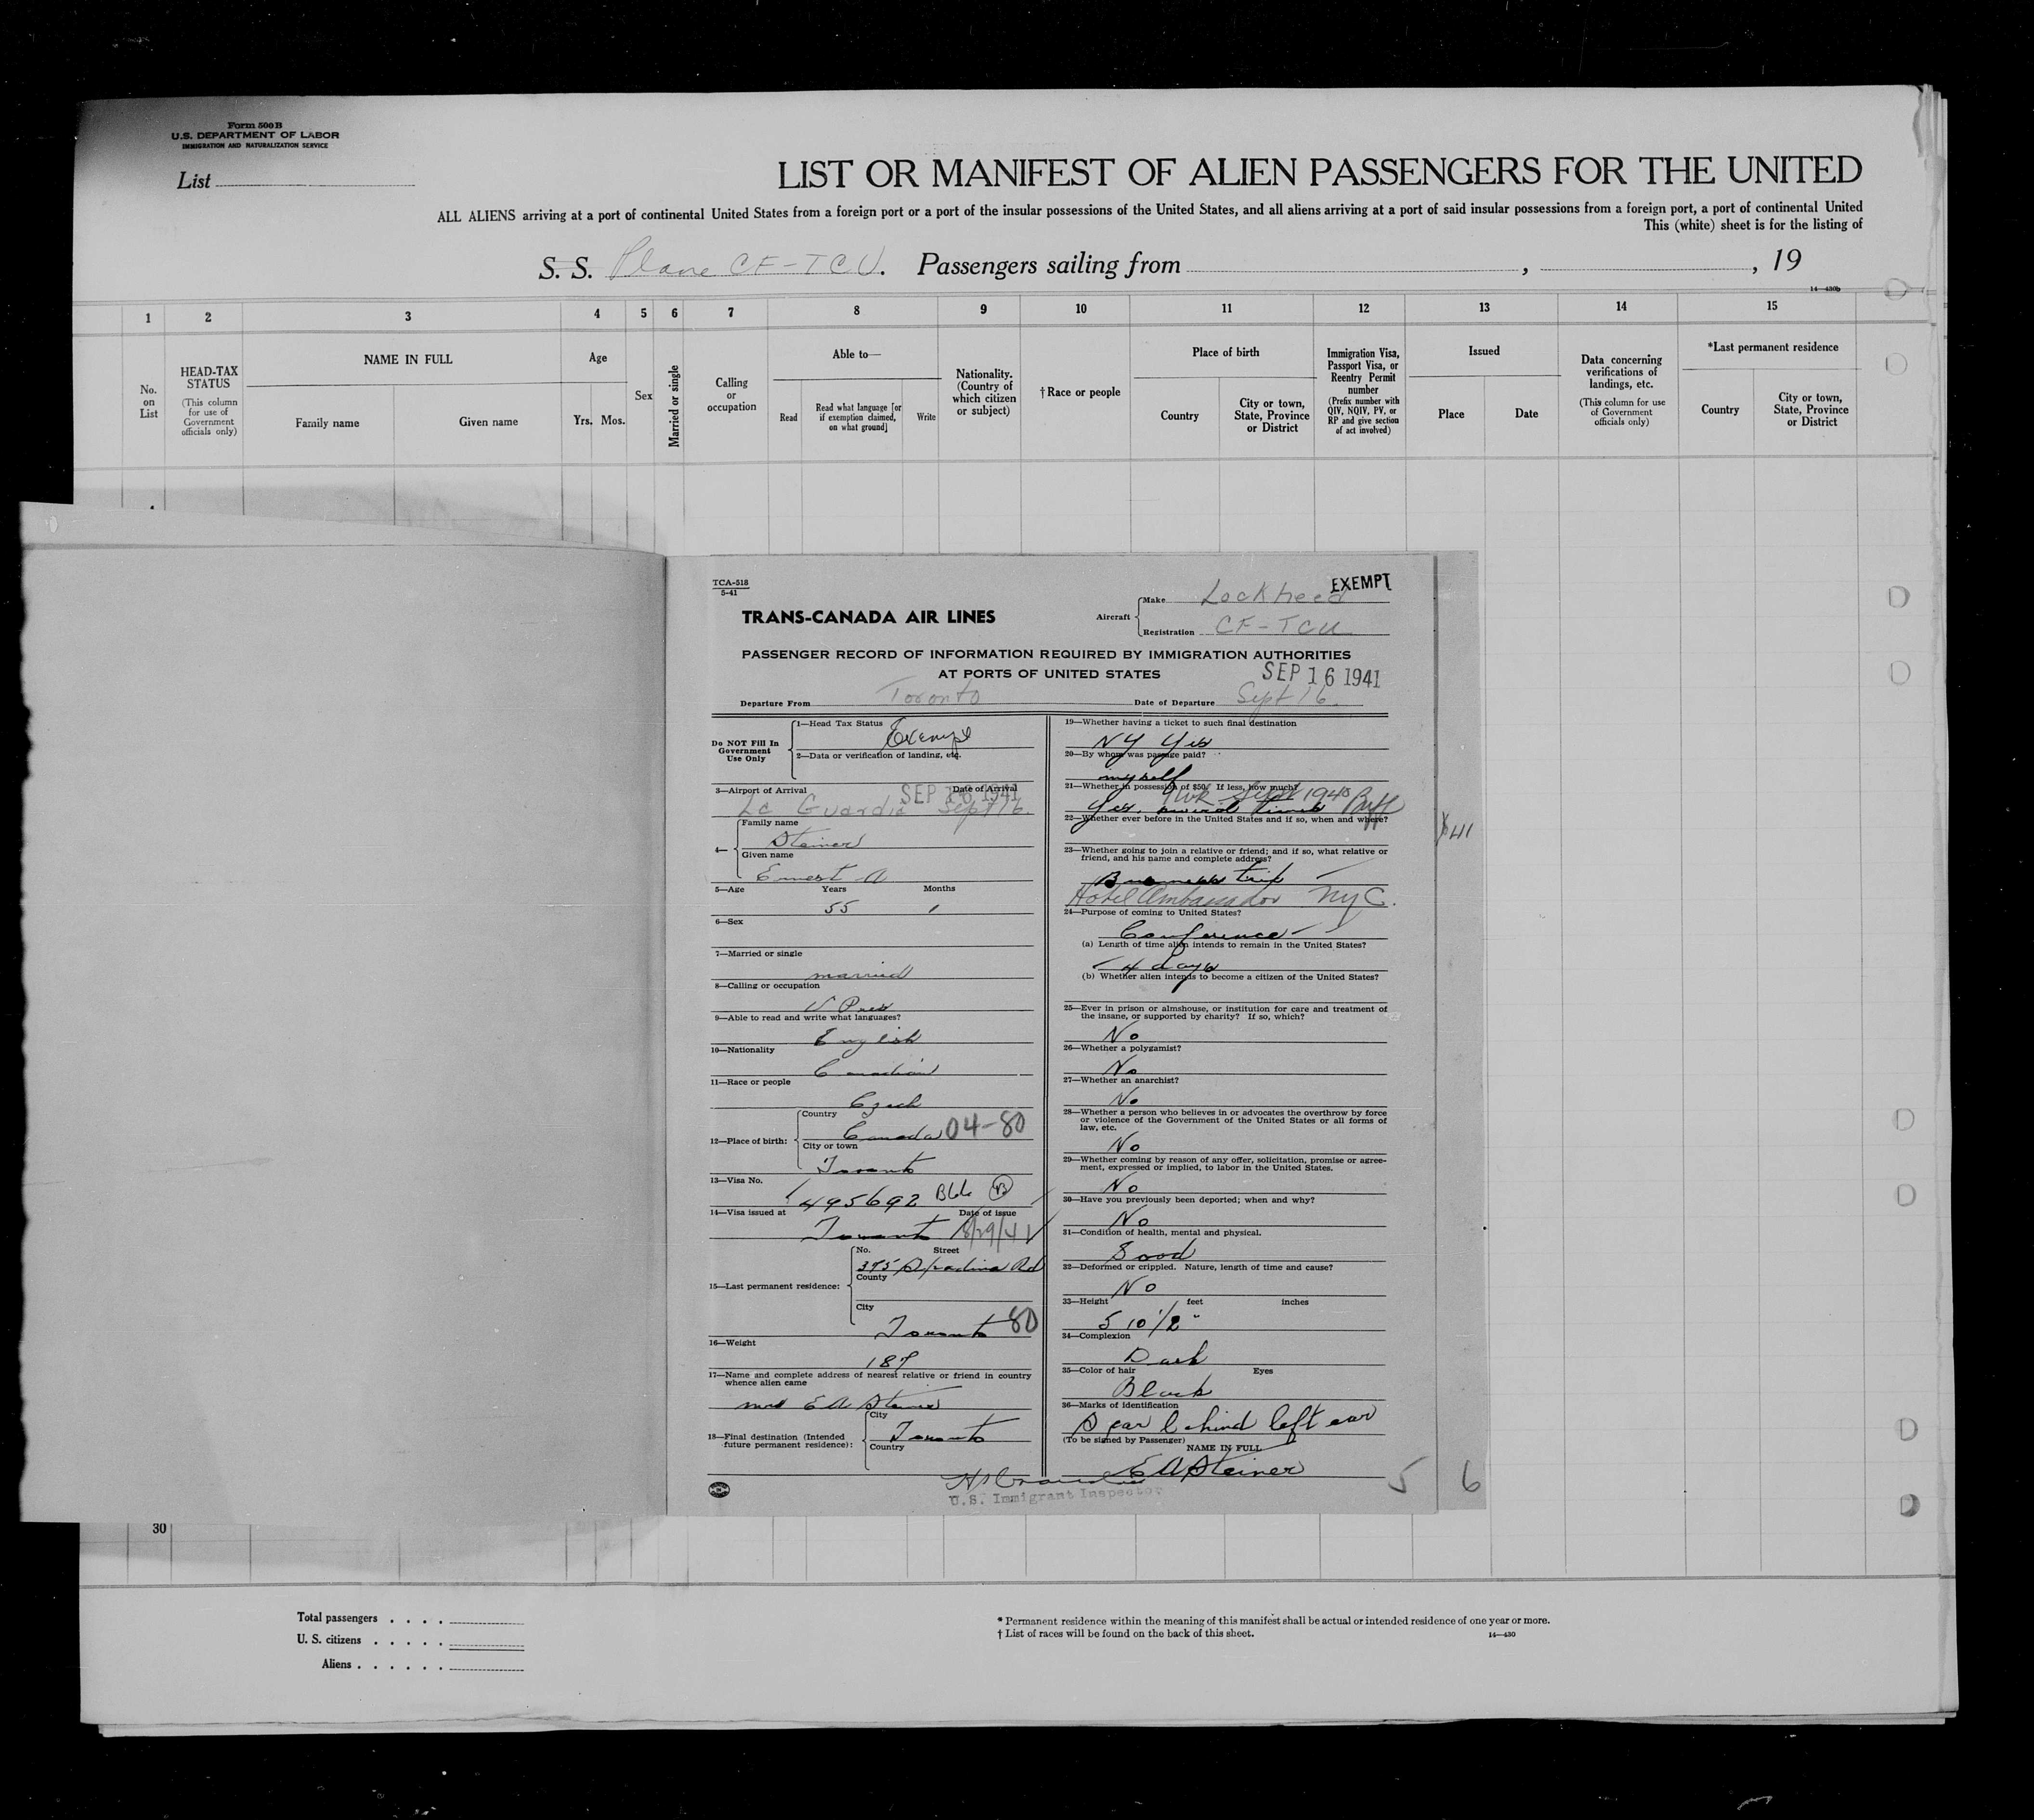 Form 500B
U.S. DEPARTMENT OF LABOR
IMMIGRATION AND NATURALIZATION SERVICE
List
LIST OR MANIFEST OF ALIEN PASSENGERS FOR THE UNITED
ALL ALIENS arriving at a port of continental United States from a foreign port or a port of the insular possessions of the United States, and all aliens arriving at a port of said insular possessions from a foreign port, a port of continental United
This (white) sheet is for the listing of
S. S. Plane CF-TCU. Passengers sailing from , , 19
14—430b
1 2 3 4 5 6 7 8 9 10 11 12 13 14 15
No. on List
HEAD-TAX STATUS
(This column for use of Government officials only)
NAME IN FULL
Family name Given name
Age
Yrs. Mos.
Sex
Married or single
Calling or occupation
Able to—
Read
Read what language [or if exemption claimed, on what ground]
Write
Nationality. (Country of which citizen or subject)
†Race or people
Place of birth
Country
City or town, State, Province or District
Immigration Visa, Passport Visa, or Reentry Permit number
(Prefix number with QIV, NQIV, PV, or RP and give section of act involved)
Issued
Place Date
Data concerning verifications of landings, etc.
(This column for use of Government officials only)
*Last permanent residence
Country
City or town, State, Province or District
TCA-518
5-41
EXEMPT
TRANS-CANADA AIR LINES
Aircraft
Make Lockheed
Registration CF-TCU
PASSENGER RECORD OF INFORMATION REQUIRED BY IMMIGRATION AUTHORITIES
AT PORTS OF UNITED STATES
SEP 16 1941
Departure From Toronto Date of Departure Sept 16
Do NOT Fill In Government Use Only
1—Head Tax Status Exempt
2—Data or verification of landing, etc.
3—Airport of Arrival Date of Arrival
SEP 16 1941
La Guardia Sept 16.
4—
Family name
Steiner
Given name
Ernest A
5—Age Years Months
55 1
6—Sex
7—Married or single
married
8—Calling or occupation
V Pres
9—Able to read and write what languages?
English
10—Nationality
Canadian
11—Race or people
Czech
12—Place of birth:
Country
Canada 04-80
City or town
Toronto
13—Visa No.
495692 B66 B
14—Visa issued at Date of issue
Toronto 8/29/41
15—Last permanent residence:
No. Street
395 Spadina Rd
County
City
Toronto 80
16—Weight
187
17—Name and complete address of nearest relative or friend in country whence alien came
Mrs E A Steiner
18—Final destination (Intended future permanent residence):
City
Toronto
Country
19—Whether having a ticket to such final destination
NY Yes
20—By whom was passage paid?
myself
21—Whether in possession of $50. If less, how much?
1 wk Sept 1940 Buff
Yes. several times
22—Whether ever before in the United States and if so, when and where?
41
23—Whether going to join a relative or friend; and if so, what relative or friend, and his name and complete address?
Business trip
Hotel Ambassador NYC.
24—Purpose of coming to United States?
Conference
(a) Length of time alien intends to remain in the United States?
4 days
(b) Whether alien intends to become a citizen of the United States?
25—Ever in prison or almshouse, or institution for care and treatment of the insane, or supported by charity? If so, which?
No
26—Whether a polygamist?
No
27—Whether an anarchist?
No
28—Whether a person who believes in or advocates the overthrow by force or violence of the Government of the United States or all forms of law, etc.
No
29—Whether coming by reason of any offer, solicitation, promise or agreement, expressed or implied, to labor in the United States.
No
30—Have you previously been deported; when and why?
No
31—Condition of health, mental and physical.
Good
32—Deformed or crippled. Nature, length of time and cause?
No
33—Height feet inches
5 10 1/2"
34—Complexion
Dark
35—Color of hair Eyes
Black
36—Marks of identification
Scar behind left ear
(To be signed by Passenger)
NAME IN FULL
E A Steiner
U.S. Immigrant Inspector
5 6
30
Total passengers
U. S. citizens
Aliens
* Permanent residence within the meaning of this manifest shall be actual or intended residence of one year or more.
† List of races will be found on the back of this sheet.
14—430